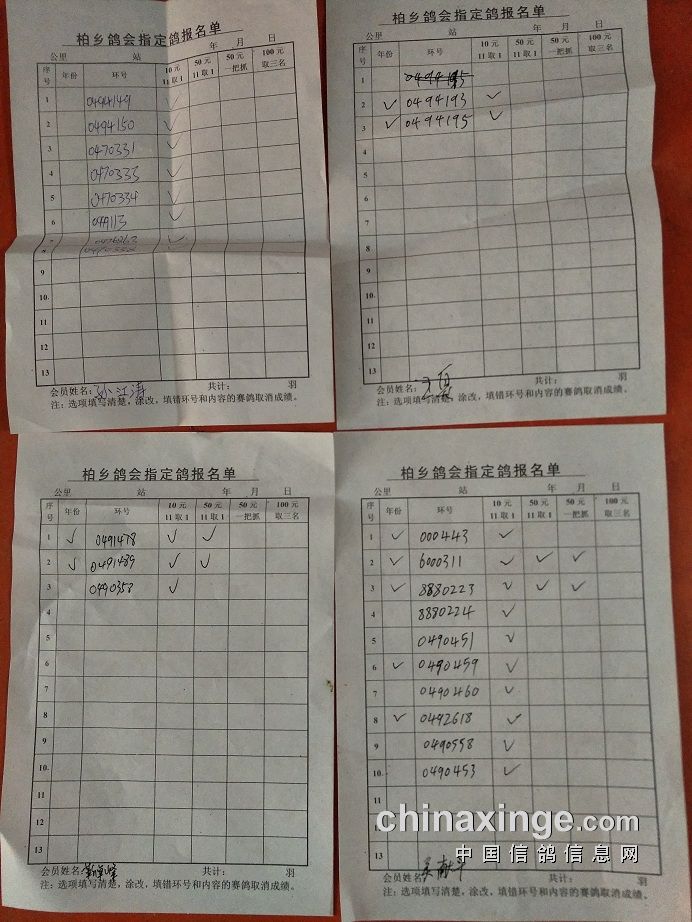 柏乡鸽会指定鸽报名单
公里 站 年 月 日
序号 年份 环号 10元 11取1 50元 11取1 50元 一把抓 100元 取三名
1 0494149 ✓
2 0494150 ✓
3 0470331 ✓
4 0470333 ✓
5 0470334 ✓
6 049113 ✓
7 ✓
8
9
10
11
12
13
会员姓名: 孙江涛 共计: 羽
注:选项填写清楚,涂改,填错环号和内容的赛鸽取消成绩。
柏乡鸽会指定鸽报名单
公里 站 年 月 日
序号 年份 环号 10元 11取1 50元 11取1 50元 一把抓 100元 取三名
1
2 ✓ 0494193 ✓
3 ✓ 0494195 ✓
4
5
6
7
8
9
10
11
12
13
会员姓名: 共计: 羽
注:选项填写清楚,涂改,填错环号和内容的赛鸽取消成绩。
柏乡鸽会指定鸽报名单
公里 站 年 月 日
序号 年份 环号 10元 11取1 50元 11取1 50元 一把抓 100元 取三名
1 ✓ 0491478 ✓ ✓
2 ✓ 0491489 ✓ ✓
3 0490358 ✓
4
5
6
7
8
9
10
11
12
13
会员姓名: 共计: 羽
注:选项填写清楚,涂改,填错环号和内容的赛鸽取消成绩。
柏乡鸽会指定鸽报名单
公里 站 年 月 日
序号 年份 环号 10元 11取1 50元 11取1 50元 一把抓 100元 取三名
1 ✓ 000443 ✓
2 ✓ 6000311 ✓ ✓ ✓
3 ✓ 8880223 ✓ ✓ ✓
4 8880224 ✓
5 0490451 ✓
6 ✓ 0490459 ✓
7 0490460 ✓
8 ✓ 0492618 ✓
9 0490558 ✓
10 0490453 ✓
11
12
13
会员姓名: 吴献斗 共计: 羽
注:选项填写清楚,涂改,填错环号和内容的赛鸽取消成绩。
chinaxinge.com
中国信鸽信息网